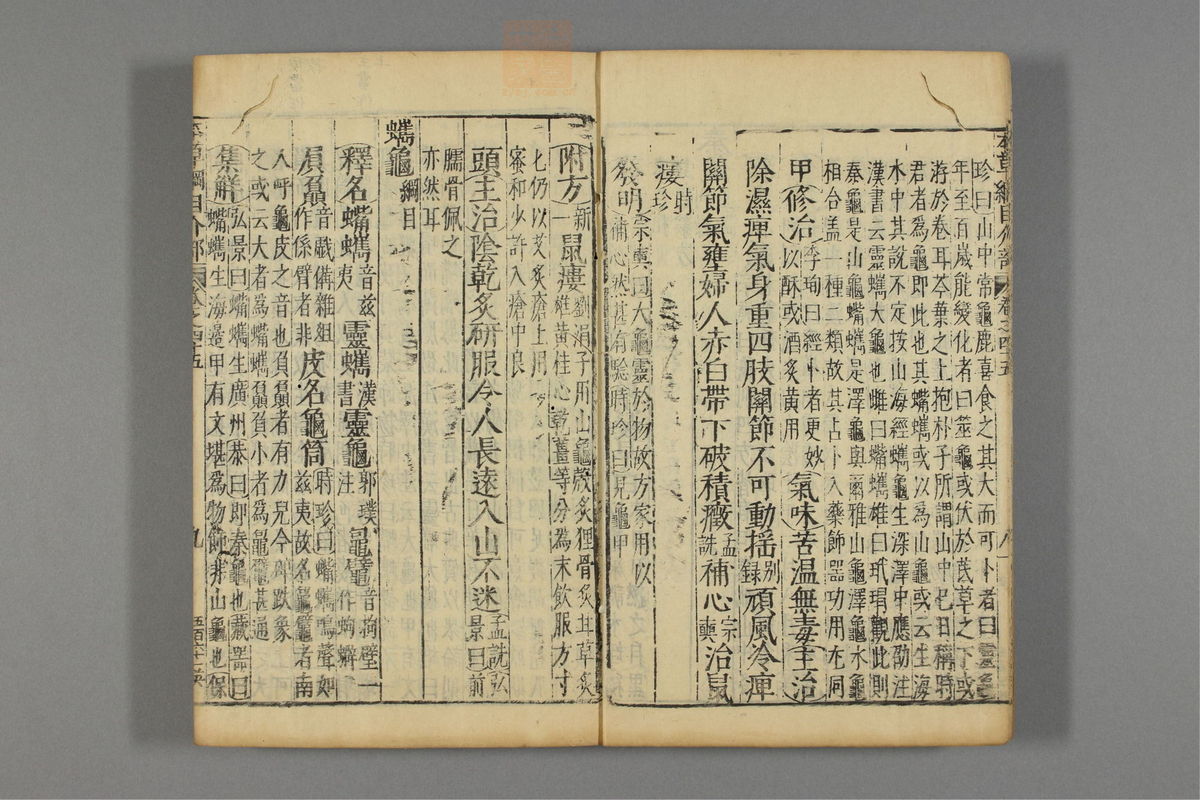 本草綱目介部 卷之四十五 八
珍曰山中常龜鹿喜食之其大而可卜者曰靈龜
年至百歲能變化者曰筮龜或伏於蓍草之下或
游於卷耳芩葉之上抱朴子所謂山中巳日稱時
君者為龜即此也其蟕蠵或以為山龜或云生海
水中其說不定按山海經蠵龜生深澤中應劭注
漢書云靈蠵大龜也雌曰蟕蠵雄曰玳瑁觀此則
秦龜是山龜蟕蠵是澤龜與爾雅山龜澤龜水龜
相合盖一種二類故其占卜入藥飾器功用尤同
甲修治李珣曰經卜者更妙以酥或酒炙黃用氣味苦温無毒主治
除濕痺氣身重四肢關節不可動搖别録頑風冷痺
關節氣壅婦人赤白帶下破積癥孟詵補心宗奭治鼠
瘻時珍
發明宗奭曰大龜靈於物故方家用以
補心然甚有驗時珍曰見龜甲
附方新一鼠瘻劉涓子用山龜殼炙狸骨炙甘草炙
雄黃桂心乾薑等分為末飲服方寸
匕仍以艾炙瘡上用
蜜和少許入瘡中良
頭主治陰乾炙研服令人長遠入山不迷孟詵弘景曰前
臑骨佩之
亦然耳
蠵龜綱目
釋名蟕蠵音兹夷靈蠵漢書靈龜郭璞注鼊音拘壁作蚼蠏
贔音戱備雜俎作係臂者非皮名龜筒時珍曰蟕蠵鳴聲如兹夷故名龜鼊者南
人呼龜皮之音也贔屓者有力皃今碑趺象
之或云大者為蟕蠵贔屓小者為鼊甚通
集解弘景曰蟕蠵生廣州恭曰即秦龜也藏器曰
蟕蠵生海邊甲有文堪為物飾非山龜也保
本草綱目介部 卷之四五 九